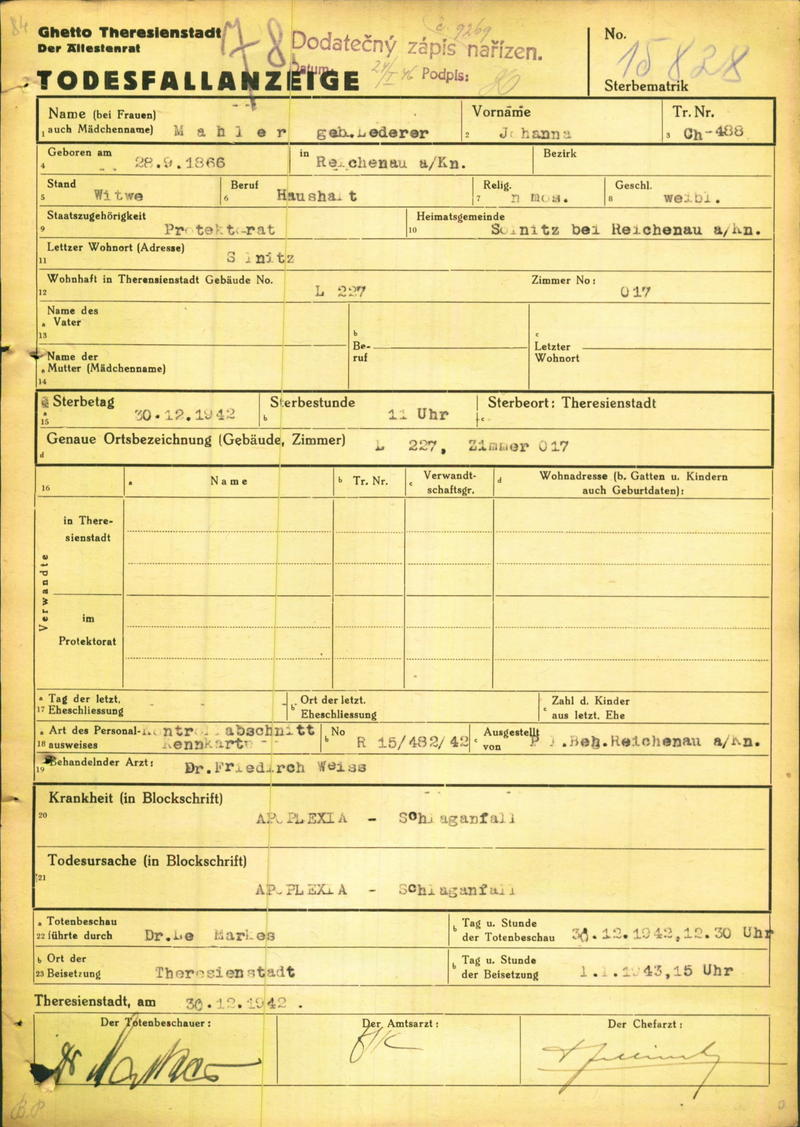 84
Ghetto Theresienstadt
Der Ältestenrat
78
č. 9269
Dodatečný zápis nařízen.
Datum: Podpis:
TODESFALLANZEIGE
No.
15828
Sterbematrik
Name (bei Frauen)
1 auch Mädchenname) Mahler geb.Lederer
Vorname
2 Johanna
Tr. Nr.
3 Ch-488
Geboren am
4 28.9.1866
in
Reichenau a/Kn.
Bezirk
Stand
5 Witwe
Beruf
6 Haushalt
Relig.
7 mos.
Geschl.
8 weibl.
Staatszugehörigkeit
9 Protektorat
Heimatsgemeinde
10 bei Reichenau a/Kn.
Lettzer Wohnort (Adresse)
11
Wohnhaft in Therensienstadt Gebäude No.
12 L 227
Zimmer No:
017
Name des
a Vater
13
b
Be-
ruf
c
Letzter
Wohnort
Name der
a Mutter (Mädchenname)
14
Sterbetag
a
15 30.12.1942
Sterbestunde
b 11 Uhr
Sterbeort: Theresienstadt
c
Genaue Ortsbezeichnung (Gebäude, Zimmer) L 227, Zimmer 017
d
16
a Name
b Tr. Nr.
c Verwandt-
schaftsgr.
d Wohnadresse (b. Gatten u. Kindern
auch Geburtdaten):
Verwandte
in There-
sienstadt
im
Protektorat
a Tag der letzt.
17 Eheschliessung
b Ort der letzt.
Eheschliessung
c Zahl d. Kinder
aus letzt. Ehe
a Art des Personal- abschnitt
18 ausweises Kennkarte
b No R 15/482/42
c Ausgestellt
von .Beh.Reichenau a/Kn.
Behandelnder Arzt:
19 Dr.Friedirch Weiss
Krankheit (in Blockschrift)
20 APOPLEXIA - Schlaganfall
Todesursache (in Blockschrift)
21
APOPLEXIA - Schlaganfall
a Totenbeschau
22 führte durch Dr. Markes
b Tag u. Stunde
der Totenbeschau 30.12.1942,12.30 Uhr
b Ort der
23 Beisetzung Theresienstadt
b Tag u. Stunde
der Beisetzung 1.1.1943,15 Uhr
Theresienstadt, am 30.12.1942.
Der Totenbeschauer:
Der Amtsarzt:
Der Chefarzt:
B.P